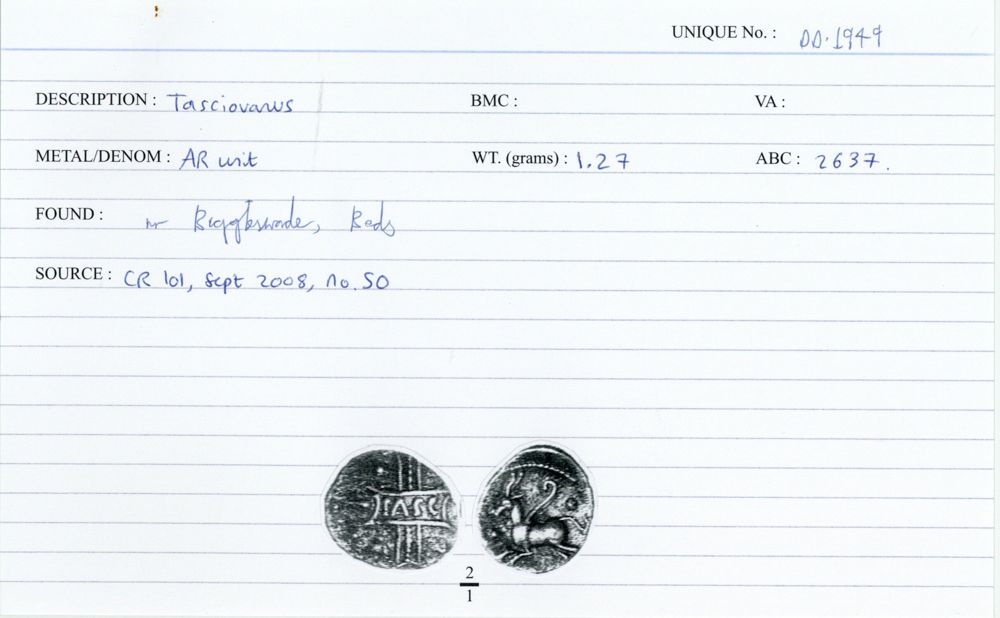 UNIQUE No. : DD.1949
DESCRIPTION : Tasciovanus BMC : VA :
METAL/DENOM : AR unit WT. (grams) : 1.27 ABC : 2637.
FOUND : nr Biggleswade, Beds
SOURCE : CR 101, Sept 2008, no. 50
TASCI
2
1